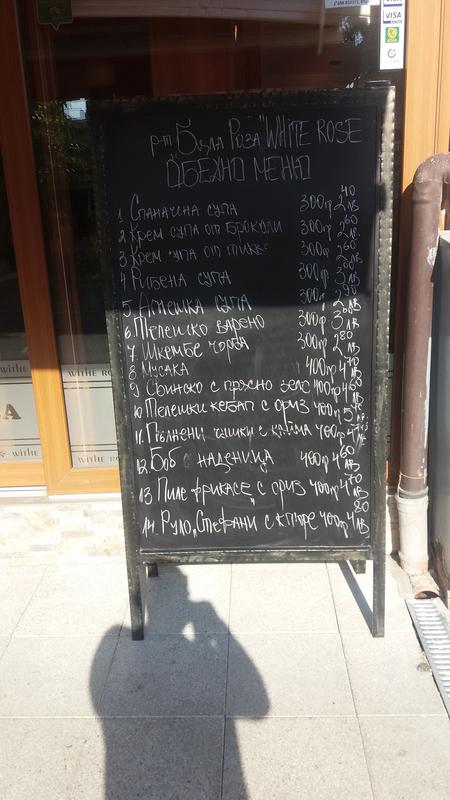 VISA
VISA
р-т Бяла Роза "WHITE ROSE
ОБЕДНО МЕНЮ
1 Спаначена супа 300гр 2 40 лв
2 Крем супа от броколи 300гр 2 60 лв
3 Крем супа от тиква 300гр 2 60 лв
4 Рибена супа 300гр
5. Агнешка супа 300гр 2 90 лв
6. Телешко варено 300гр 3 лв
7. Шкембе чорба 300гр 2 80 лв
8 Мусака 400гр
9 Свинско с прясно зеле 400гр 4
10 Телешки кебап с ориз 400гр 5
11. Пълнени чушки с кайма 400гр 4
12. Боб с наденица 400гр 4 60 лв
13 Пиле "фрикасе" с ориз 400гр 4
14 Руло "Стефани" с к.пюре 400гр 4 80 лв
WITHE RO
WITHE
WITHE RO